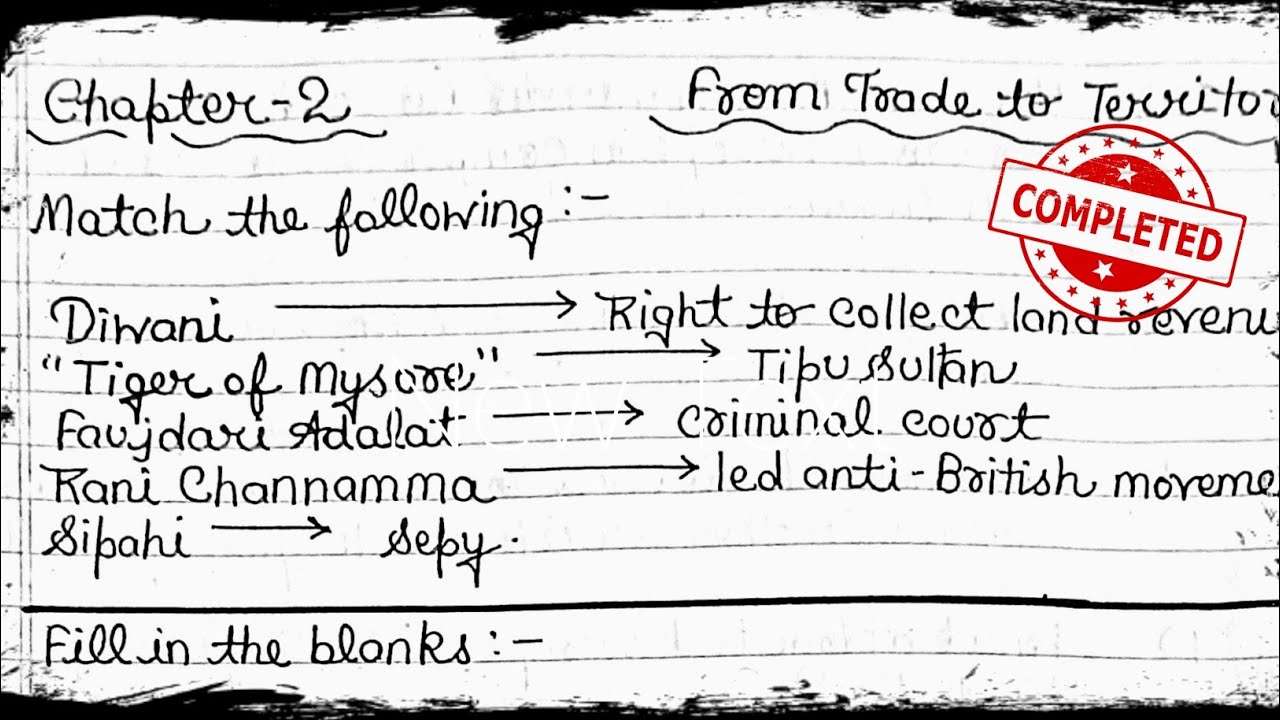 Chapter-2 From Trade to Territor
COMPLETED
Match the following :-
Diwani → Right to collect land revenu
"Tiger of Mysore" → Tipu Sultan
Faujdari Adalat → criminal court
Rani Channamma → led anti-British moveme
Sipahi → Sepy.
Fill in the blanks :-